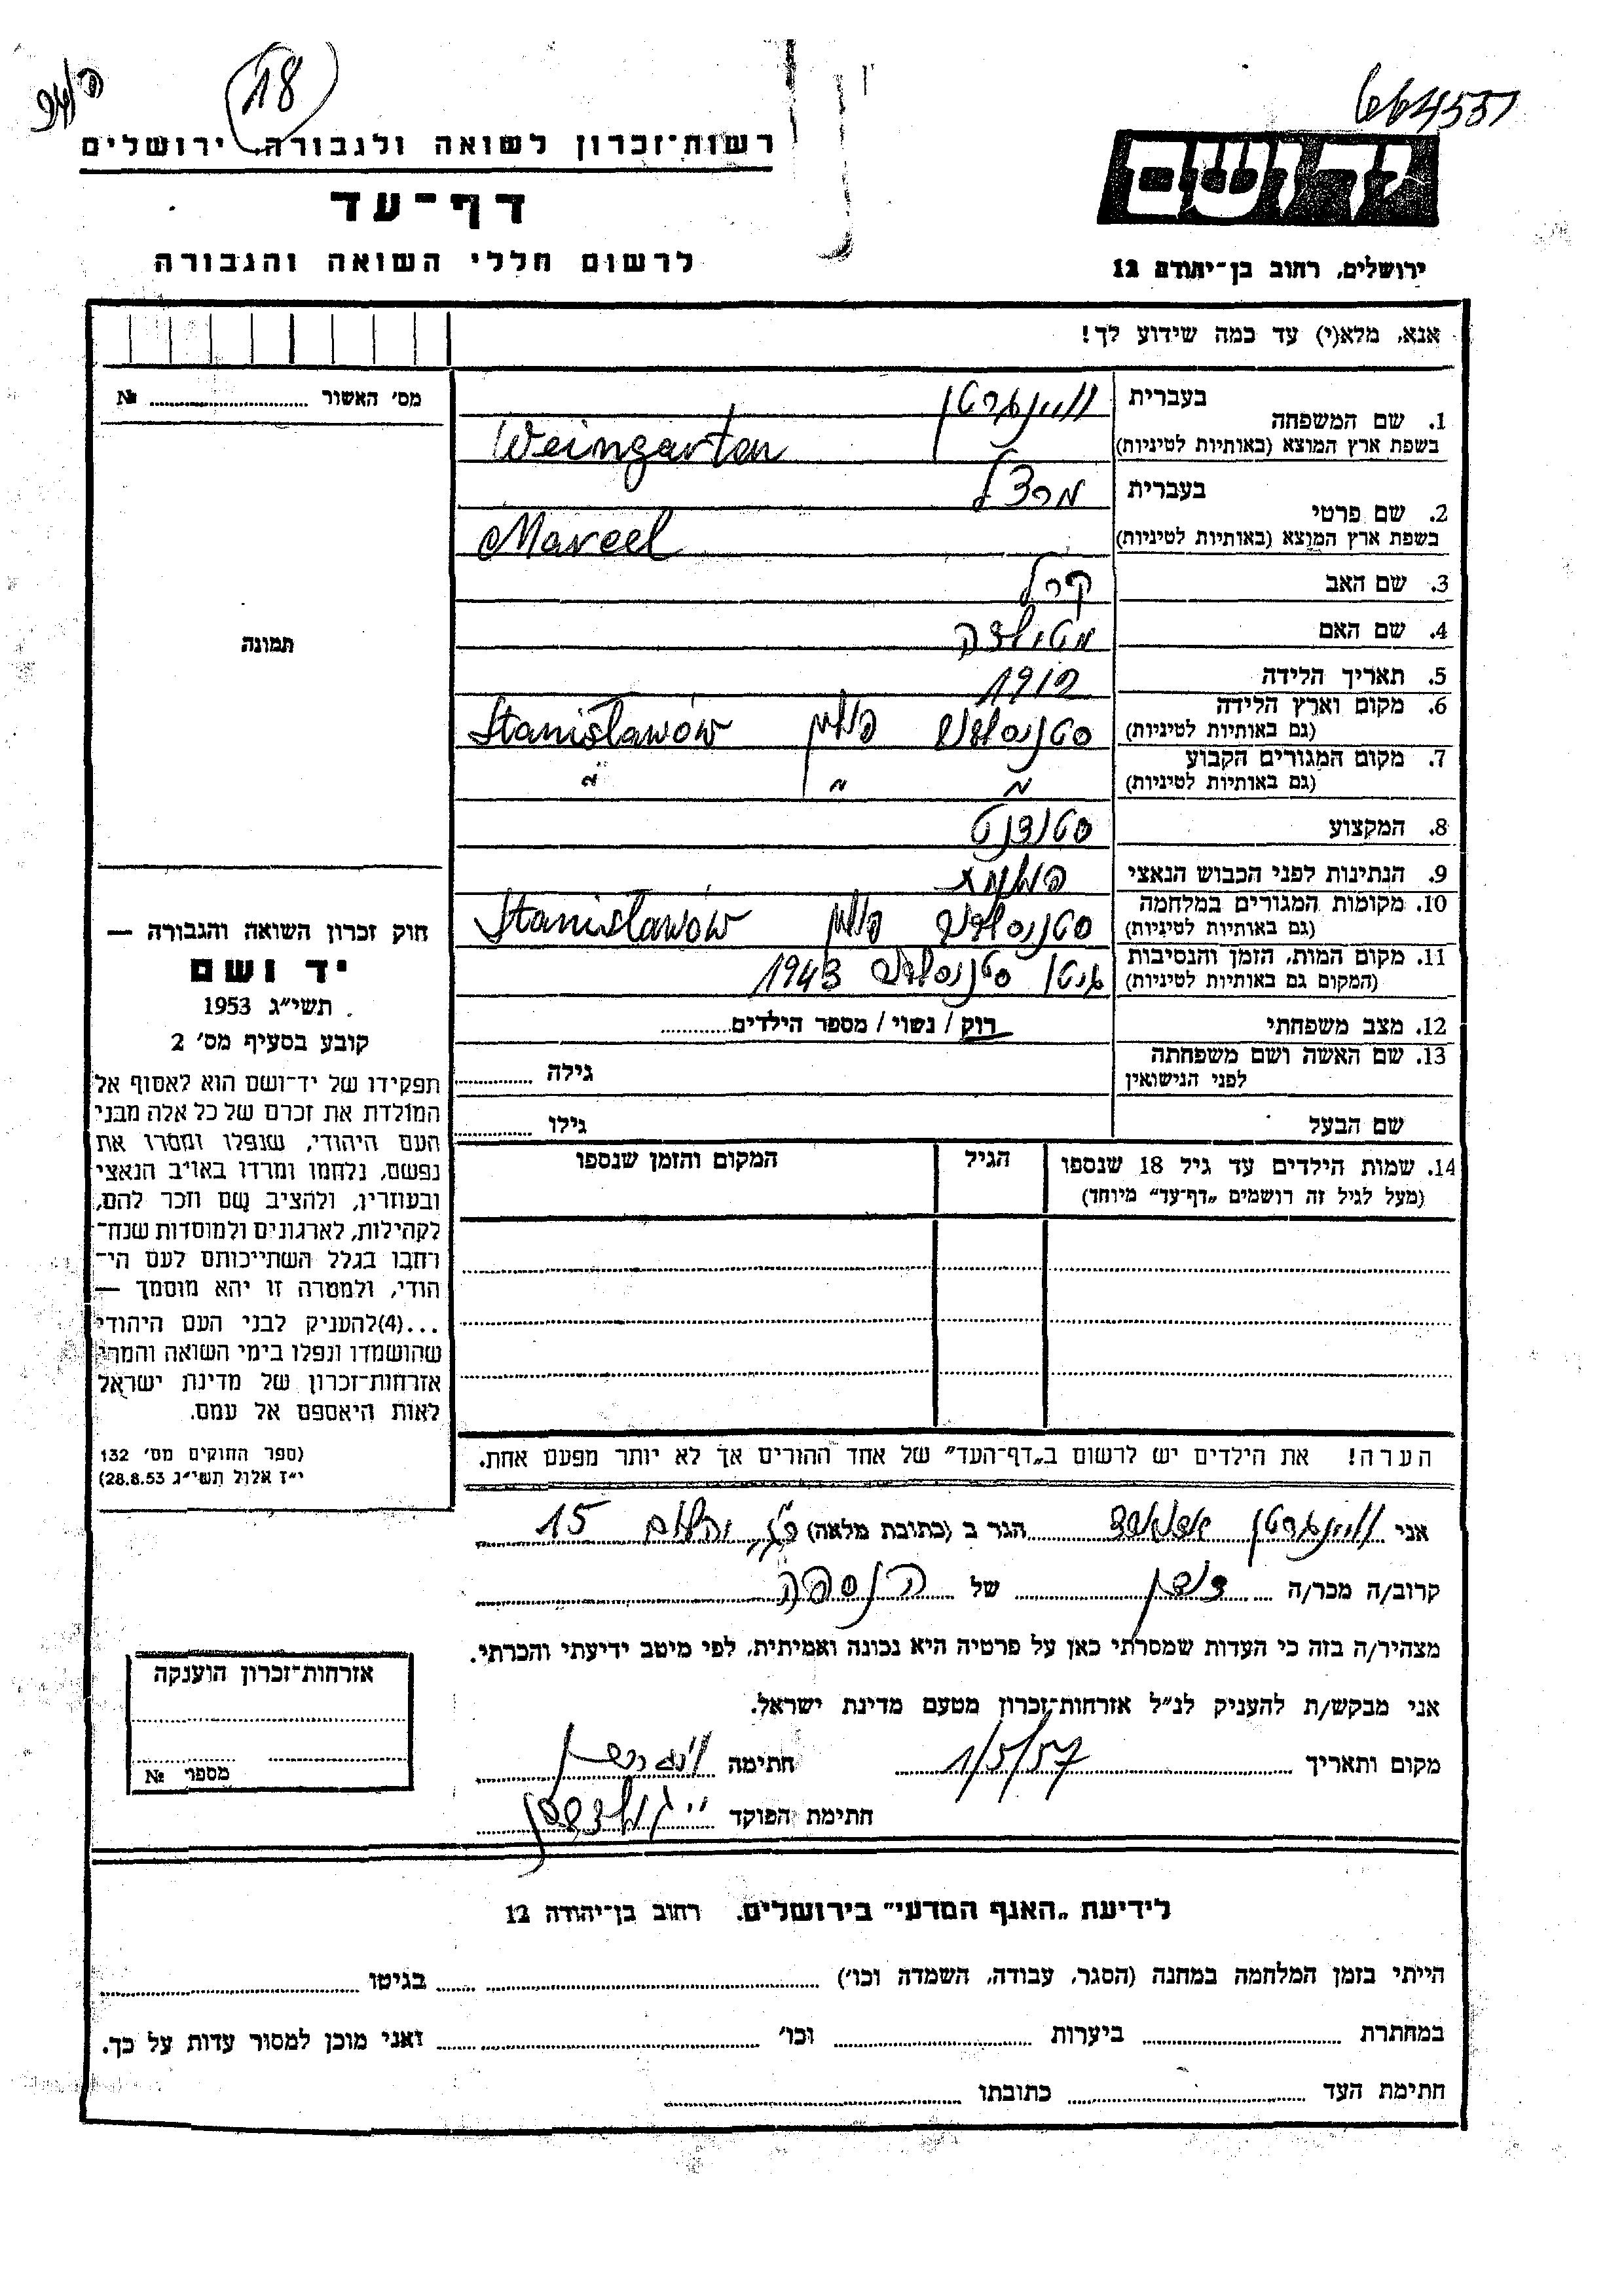 18
664557
רשות־זכרון לשואה ולגבורה, ירושלים
דף־עד
לרשום חללי השואה והגבורה
יד ושם
ירושלים, רחוב בן־יהודה 12
אנא, מלא(י) עד כמה שידוע לך!
מס׳ האשור № 
1. שם המשפחה
בעברית ווינגרטן
בשפת ארץ המוצא (באותיות לטיניות) Weingarten
2. שם פרטי
בעברית מרצל
בשפת ארץ המוצא (באותיות לטיניות) Marcel
3. שם האב קרל
4. שם האם מטילדה
5. תאריך הלידה 1912
6. מקום וארץ הלידה
(גם באותיות לטיניות) סטניסלבוב פולין Stanisławów
7. מקום המגורים הקבוע
(גם באותיות לטיניות) " " "
8. המקצוע סטודנט
9. הנתינות לפני הכבוש הנאצי פולנית
10. מקומות המגורים במלחמה
(גם באותיות לטיניות) סטניסלבוב פולין Stanisławów
11. מקום המות, הזמן והנסיבות
(המקום גם באותיות לטיניות) גיטו סטניסלבוב 1943
12. מצב משפחתי רוק / נשוי / מספר הילדים
13. שם האשה ושם משפחתה
לפני הנישואין גילה
שם הבעל גילו
14. שמות הילדים עד גיל 18 שנספו
(מעל לגיל זה רושמים „דף־עד״ מיוחד)
הגיל
המקום והזמן שנספו
תמונה
חוק זכרון השואה והגבורה —
יד ושם
תשי״ג 1953
קובע בסעיף מס׳ 2
תפקידו של יד־ושם הוא לאסוף אל
המולדת את זכרם של כל אלה מבני
העם היהודי, שנפלו ומסרו את
נפשם, נלחמו ומרדו באויב הנאצי
ובעוזריו, ולהציב שם וזכר להם,
לקהילות, לארגונים ולמוסדות שנח־
רחבו בגלל השתייכותם לעם הי־
הודי, ולמטרה זו יהא מוסמך —
...(4)להעניק לבני העם היהודי
שהושמדו ונפלו בימי השואה והמרי
אזרחות־זכרון של מדינת ישראל
לאות היאספם אל עמם.
(ספר החוקים מס׳ 132
י״ז אלול תשי״ג 28.8.53)
הערה! את הילדים יש לרשום ב„דף־העד״ של אחד ההורים אך לא יותר מפעם אחת.
אני ווינגרטן הגר ב (כתובת מלאה) 15
קרוב/ה מכר/ה של הנספה
מצהיר/ה בזה כי העדות שמסרתי כאן על פרטיה היא נכונה ואמיתית, לפי מיטב ידיעתי והכרתי.
אני מבקש/ת להעניק לנ״ל אזרחות־זכרון מטעם מדינת ישראל.
מקום ותאריך 1/5/57 חתימה
חתימת הפוקד
אזרחות־זכרון הוענקה
מספר №
לידיעת „האגף המדעי״ בירושלים. רחוב בן־יהודה 12
הייתי בזמן המלחמה במחנה (הסגר, עבודה, השמדה וכו׳) בגיטו
במחתרת ביערות וכו׳ ואני מוכן למסור עדות על כך.
חתימת העד כתובתו